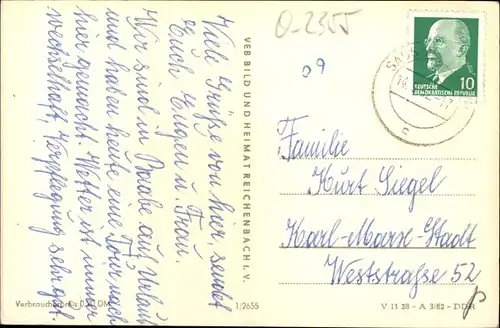 Viele Grüße von hier, sendet
Euch Eugen u. Frau.
Wir sind in Daube auf Urlaub
und haben heute eine Tour nach
hier gemacht. Wetter ist immer
wechselhaft, Verpflegung sehr gut
VEB BILD UND HEIMAT REICHENBACH I. V.
Verbraucherpreis 0,20 DM
1/2655
0-2355
09
10
DEUTSCHE
DEMOKRATISCHE REPUBLIK
Familie
Kurt Siegel
Karl-Marx-Stadt
Weststraße 52
V 11 28 - A 3/62 - DDR